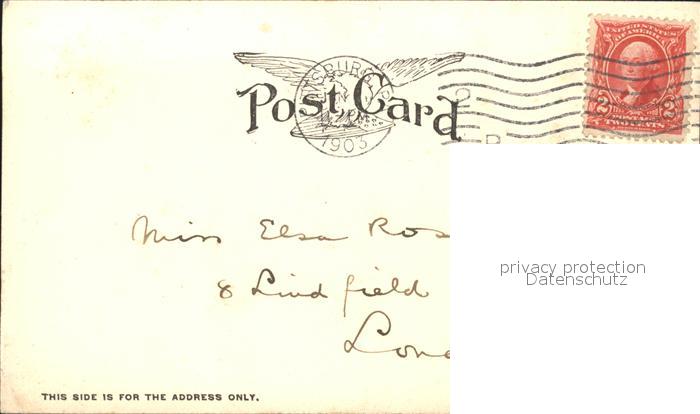 Post Card
1903
UNITED STATES
OF AMERICA
2 2
POSTAGE
TWO CENTS
Miss Elsa Ros
8 Lindfield
Lon
privacy protection
Datenschutz
THIS SIDE IS FOR THE ADDRESS ONLY.